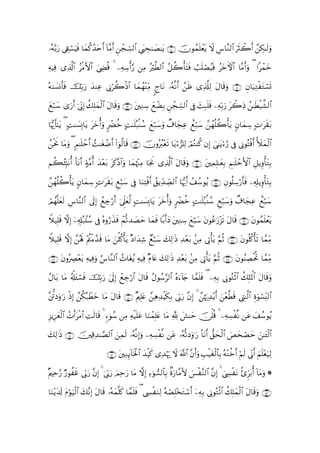 وَلَٰكِنَّ أَكْثَرَ ٱلنَّاسِ لَا يَعْلَمُونَ ۝ يَٰصَٰحِبَىِ ٱلسِّجْنِ أَمَّآ أَحَدُكُمَا فَيَسْقِى رَبَّهُۥ
خَمْرًا ۖ وَأَمَّا ٱلْءَاخَرُ فَيُصْلَبُ فَتَأْكُلُ ٱلطَّيْرُ مِن رَّأْسِهِۦ ۚ قُضِىَ ٱلْأَمْرُ ٱلَّذِى فِيهِ
تَسْتَفْتِيَانِ ۝ وَقَالَ لِلَّذِى ظَنَّ أَنَّهُۥ نَاجٍ مِّنْهُمَا ٱذْكُرْنِى عِندَ رَبِّكَ فَأَنسَىٰهُ
ٱلشَّيْطَٰنُ ذِكْرَ رَبِّهِۦ فَلَبِثَ فِى ٱلسِّجْنِ بِضْعَ سِنِينَ ۝ وَقَالَ ٱلْمَلِكُ إِنِّىٓ أَرَىٰ سَبْعَ
بَقَرَٰتٍ سِمَانٍ يَأْكُلُهُنَّ سَبْعٌ عِجَافٌ وَسَبْعَ سُنۢبُلَٰتٍ خُضْرٍ وَأُخَرَ يَابِسَٰتٍ ۖ يَٰٓأَيُّهَا
ٱلْمَلَأُ أَفْتُونِى فِى رُءْيَٰىَ إِن كُنتُمْ لِلرُّءْيَا تَعْبُرُونَ ۝ قَالُوٓا۟ أَضْغَٰثُ أَحْلَٰمٍ ۖ وَمَا نَحْنُ
بِتَأْوِيلِ ٱلْأَحْلَٰمِ بِعَٰلِمِينَ ۝ وَقَالَ ٱلَّذِى نَجَا مِنْهُمَا وَٱدَّكَرَ بَعْدَ أُمَّةٍ أَنَا۠ أُنَبِّئُكُم
بِتَأْوِيلِهِۦ فَأَرْسِلُونِ ۝ يُوسُفُ أَيُّهَا ٱلصِّدِّيقُ أَفْتِنَا فِى سَبْعِ بَقَرَٰتٍ سِمَانٍ يَأْكُلُهُنَّ
سَبْعٌ عِجَافٌ وَسَبْعِ سُنۢبُلَٰتٍ خُضْرٍ وَأُخَرَ يَابِسَٰتٍ لَّعَلِّىٓ أَرْجِعُ إِلَى ٱلنَّاسِ لَعَلَّهُمْ
يَعْلَمُونَ ۝ قَالَ تَزْرَعُونَ سَبْعَ سِنِينَ دَأَبًا فَمَا حَصَدتُّمْ فَذَرُوهُ فِى سُنۢبُلِهِۦٓ إِلَّا قَلِيلًا
مِّمَّا تَأْكُلُونَ ۝ ثُمَّ يَأْتِى مِنۢ بَعْدِ ذَٰلِكَ سَبْعٌ شِدَادٌ يَأْكُلْنَ مَا قَدَّمْتُمْ لَهُنَّ إِلَّا قَلِيلًا
مِّمَّا تُحْصِنُونَ ۝ ثُمَّ يَأْتِى مِنۢ بَعْدِ ذَٰلِكَ عَامٌ فِيهِ يُغَاثُ ٱلنَّاسُ وَفِيهِ يَعْصِرُونَ ۝
وَقَالَ ٱلْمَلِكُ ٱئْتُونِى بِهِۦ ۖ فَلَمَّا جَآءَهُ ٱلرَّسُولُ قَالَ ٱرْجِعْ إِلَىٰ رَبِّكَ فَسْـَٔلْهُ مَا بَالُ
ٱلنِّسْوَةِ ٱلَّٰتِى قَطَّعْنَ أَيْدِيَهُنَّ ۚ إِنَّ رَبِّى بِكَيْدِهِنَّ عَلِيمٌ ۝ قَالَ مَا خَطْبُكُنَّ إِذْ رَٰوَدتُّنَّ
يُوسُفَ عَن نَّفْسِهِۦ ۚ قُلْنَ حَٰشَ لِلَّهِ مَا عَلِمْنَا عَلَيْهِ مِن سُوٓءٍ ۚ قَالَتِ ٱمْرَأَتُ ٱلْعَزِيزِ
ٱلْـَٰٔنَ حَصْحَصَ ٱلْحَقُّ أَنَا۠ رَٰوَدتُّهُۥ عَن نَّفْسِهِۦ وَإِنَّهُۥ لَمِنَ ٱلصَّٰدِقِينَ ۝ ذَٰلِكَ
لِيَعْلَمَ أَنِّى لَمْ أَخُنْهُ بِٱلْغَيْبِ وَأَنَّ ٱللَّهَ لَا يَهْدِى كَيْدَ ٱلْخَآئِنِينَ ۝
۞ وَمَآ أُبَرِّئُ نَفْسِىٓ ۚ إِنَّ ٱلنَّفْسَ لَأَمَّارَةٌۢ بِٱلسُّوٓءِ إِلَّا مَا رَحِمَ رَبِّىٓ ۚ إِنَّ رَبِّى غَفُورٌ رَّحِيمٌ
۝ وَقَالَ ٱلْمَلِكُ ٱئْتُونِى بِهِۦٓ أَسْتَخْلِصْهُ لِنَفْسِى ۖ فَلَمَّا كَلَّمَهُۥ قَالَ إِنَّكَ ٱلْيَوْمَ لَدَيْنَا